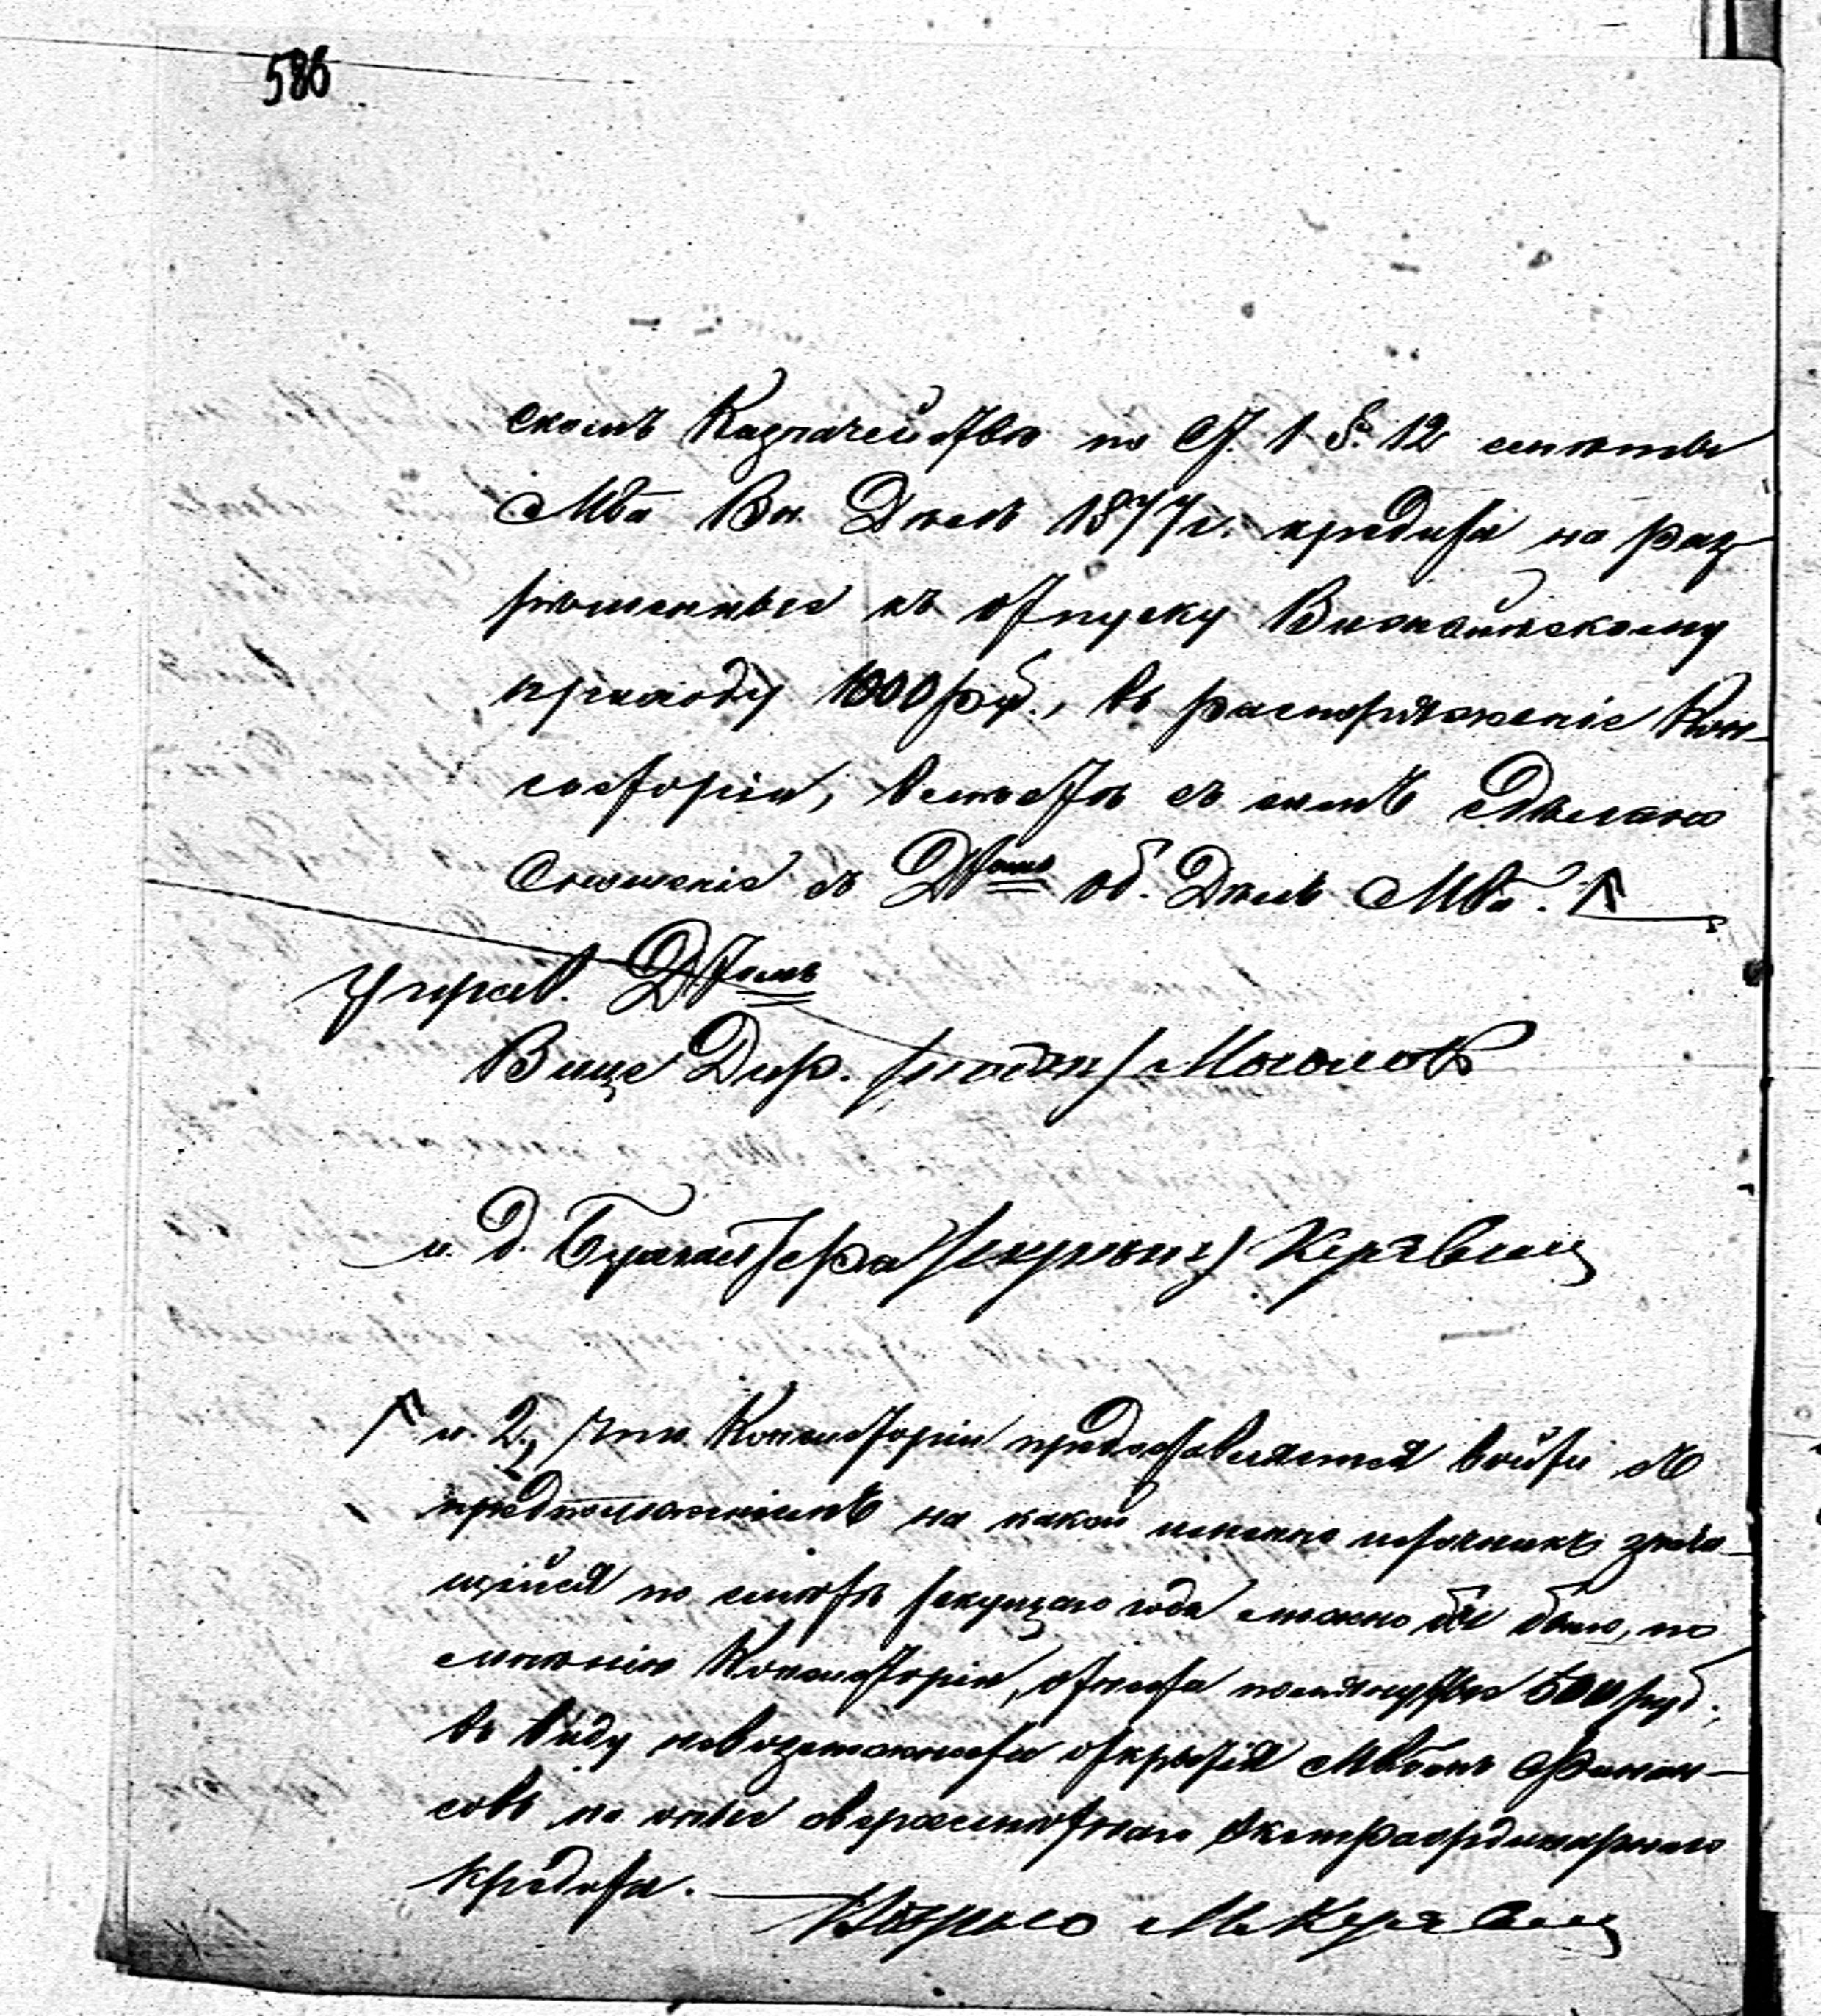 586
скомъ Казначействѣ по ст. 1 §. 12 смѣты
Мва Вн. Дѣлъ 1877 г. кредита на раз-
рѣшенные къ отпуску Вижайнскому
приходу 1000 руб., въ распоряженіе Кон-
систоріи, вмѣстѣ съ симъ сдѣлано
сношеніе съ Дтомъ об. Дѣлъ Мва.
Управ. Дтомъ
Вице Дир. (подп)
и. д. Бухгалтера (скрѣпилъ)
и 2, что Консисторіи предоставляется войти съ
предположеніемъ на какой именно источникъ знача-
щійся по смѣтѣ текущаго года можно бы было, по
мнѣнію Консисторіи, отнести помянутые 500 руб.,
въ виду невозможности открытія Мвомъ Финан-
совъ на оные сверхсмѣтнаго экстраординарнаго
кредита.